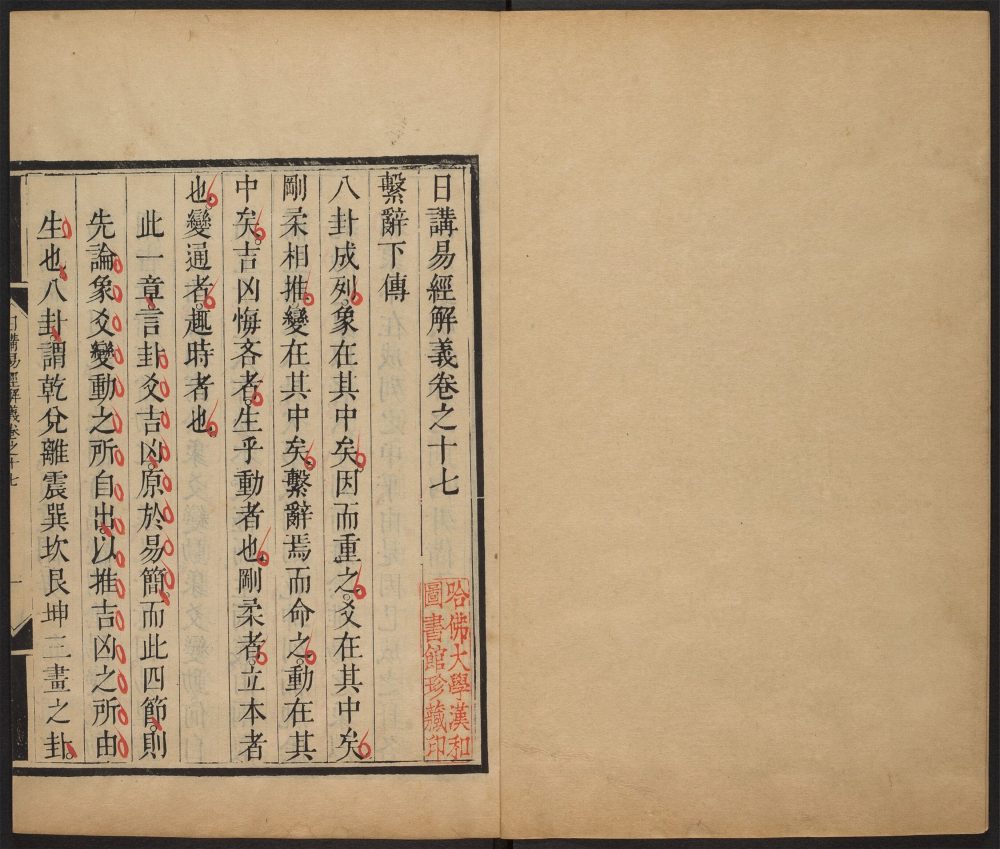 日講易經解義卷之十七
繫辭下傳
八卦成列。象在其中矣。因而重之。爻在其中矣。
剛柔相推。變在其中矣。繫辭焉而命之。動在其
中矣。吉凶悔吝者。生乎動者也。剛柔者。立本者
也。變通者。趣時者也。
此一章言卦爻吉凶。原於易簡。而此四節。則
先論象爻變動之所自出。以推吉凶之所由
生也。八卦。謂乾兌離震巽坎艮坤三畫之卦。
日講易經解義卷之十七
一
哈佛大學漢和
圖書館珍藏印